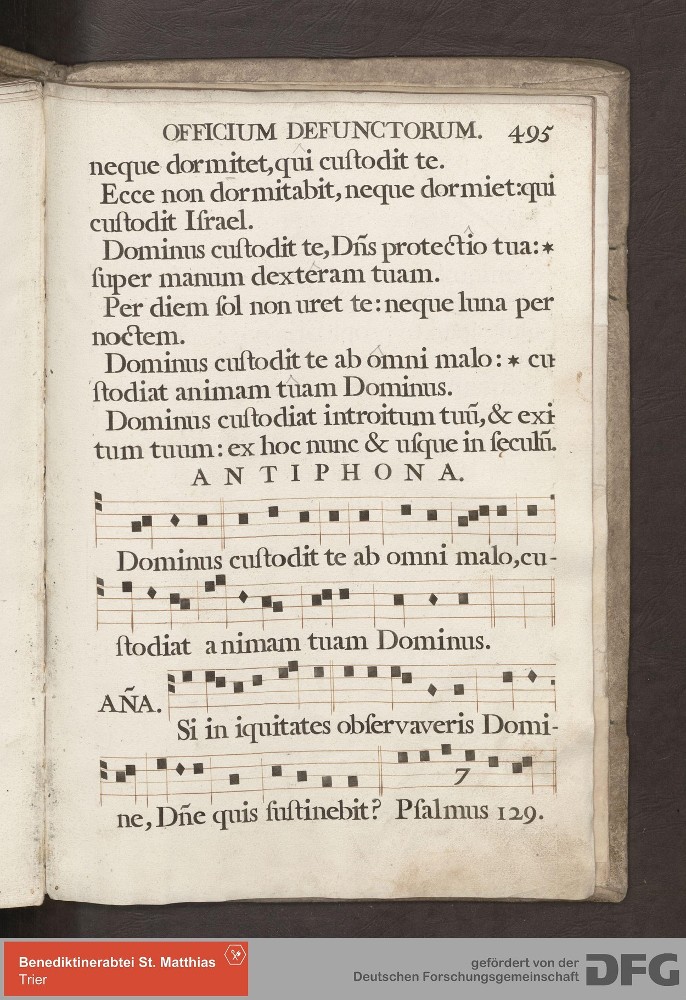 OFFICIUM DEFUNCTORUM. 495
neque dormitet, qui cuſtodit te.
Ecce non dormitabit, neque dormiet: qui
cuſtodit Iſrael.
Dominus cuſtodit te, Dn̄s protectio tua: *
ſuper manum dexteram tuam.
Per diem ſol non uret te: neque luna per
noctem.
Dominus cuſtodit te ab omni malo: * cu-
ſtodiat animam tuam Dominus.
Dominus cuſtodiat introitum tuū, & exi-
tum tuum: ex hoc nunc & uſque in ſęculū.
ANTIPHONA.
Dominus cuſtodit te ab omni malo, cu-
ſtodiat animam tuam Dominus.
AÑA.
Si in iquitates obſervaveris Domi-
7
ne, Dn̄e quis ſuſtinebit? Pſalmus 129.
Benediktinerabtei St. Matthias
Trier
gefördert von der
Deutschen Forschungsgemeinschaft
DFG